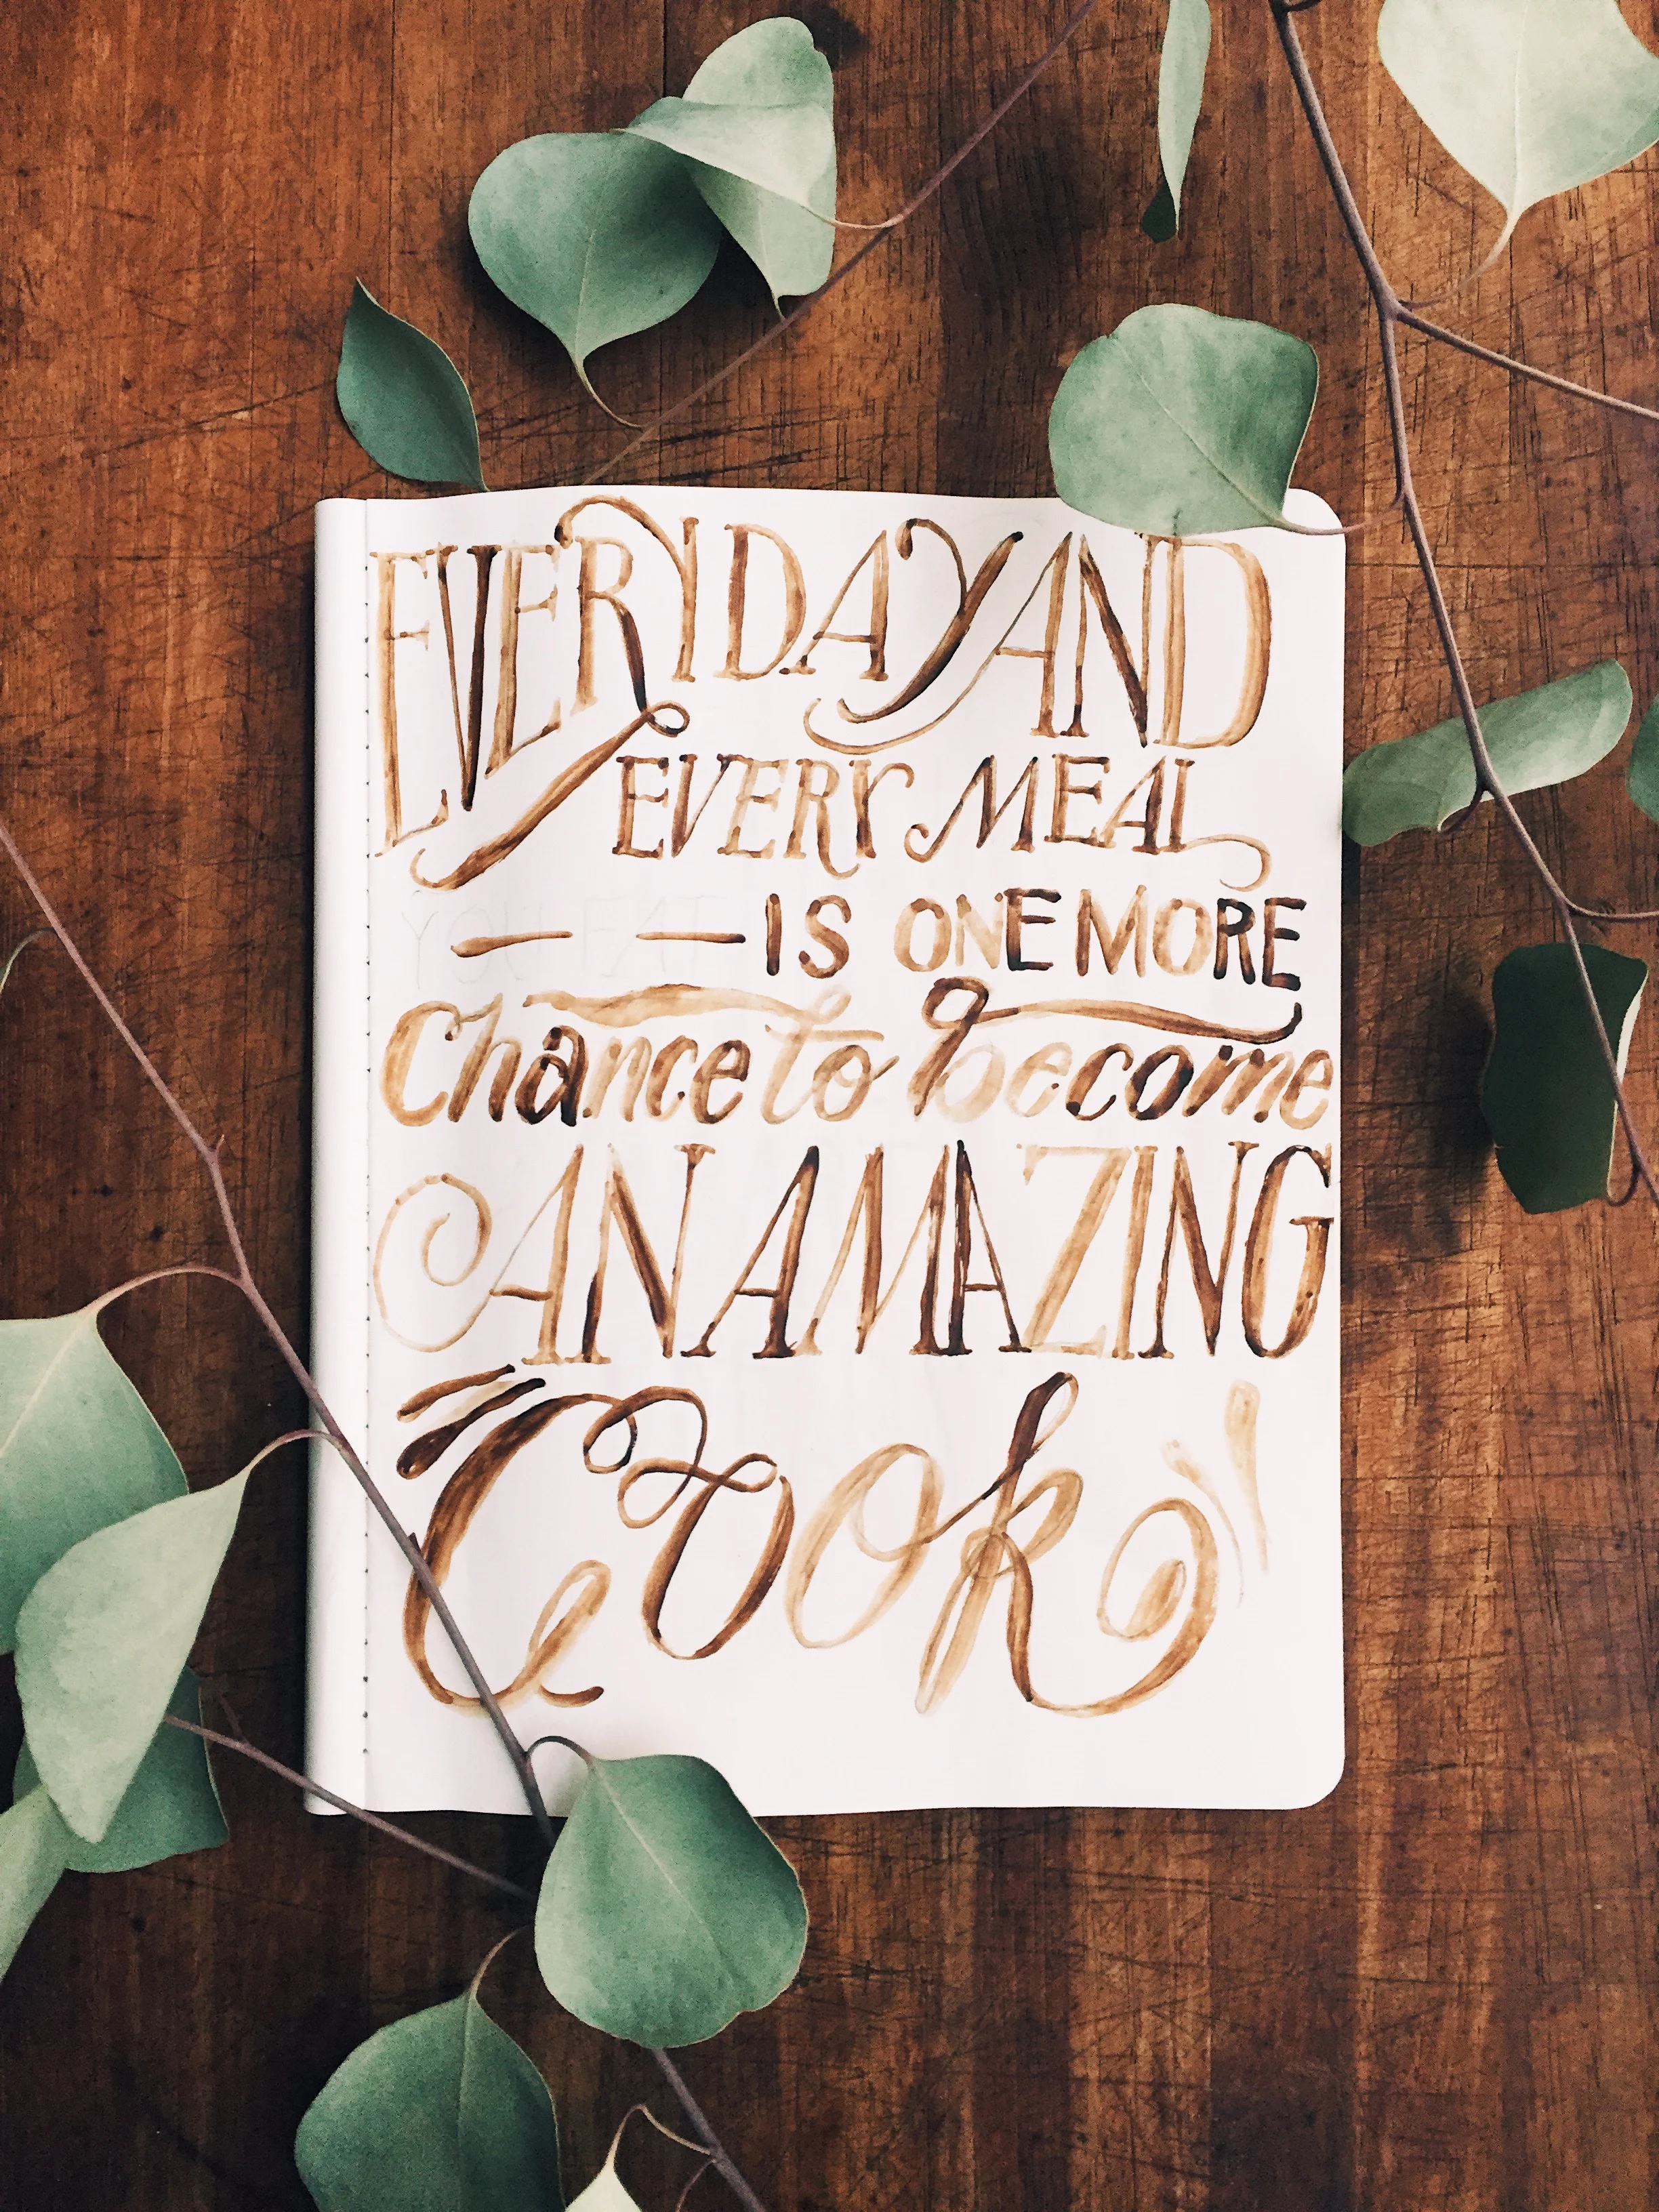 EVERYDAY AND
EVERY MEAL
YOU EAT — — IS ONE MORE
Chance to become
AN AMAZING
Cook